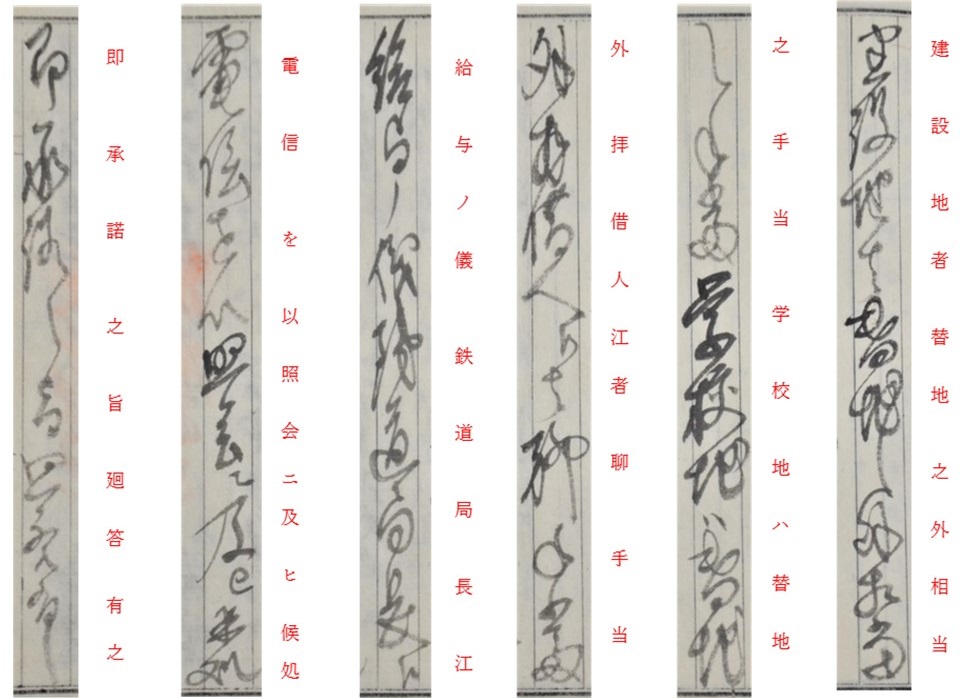 建設地者替地之外相当
之手当学校地ハ替地
外拝借人江者聊手当
給与ノ儀鉄道局長江
電信を以照会ニ及ヒ候処
即承諾之旨廻答有之